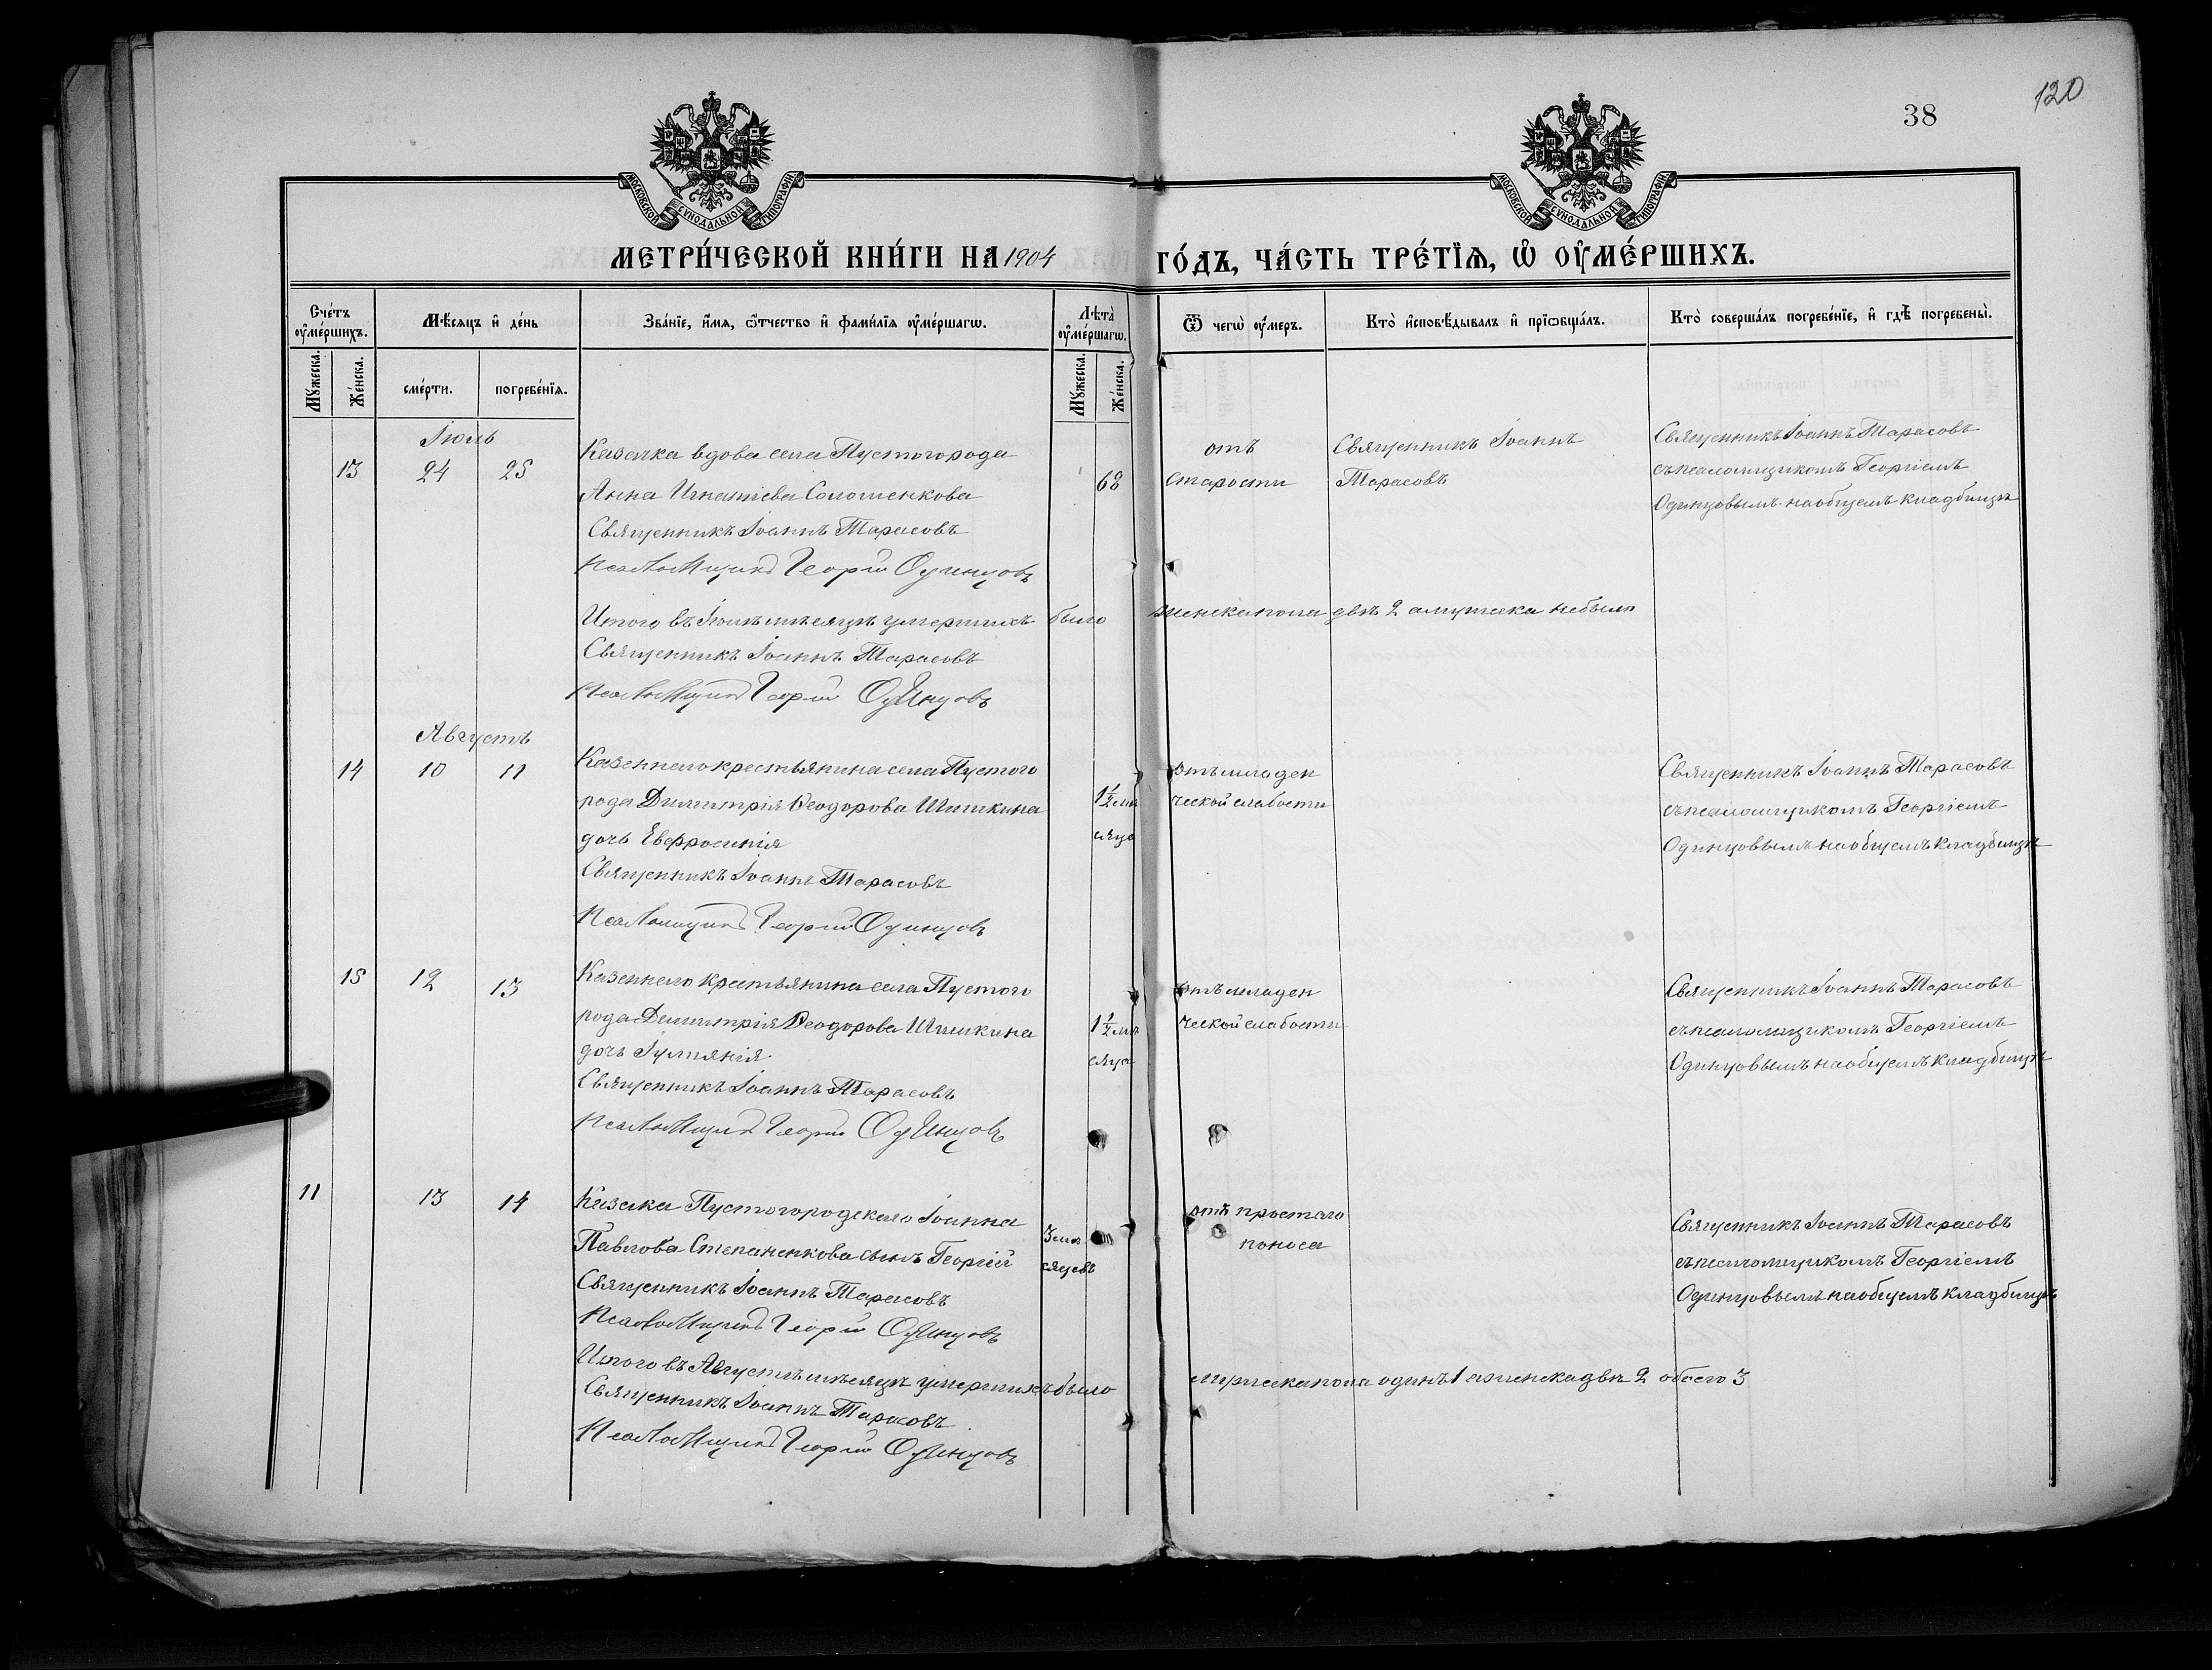 120
38
МОСКОВСКОЙ СѴНОДАЛЬНОЙ ТИПОГРАФІИ
МОСКОВСКОЙ СѴНОДАЛЬНОЙ ТИПОГРАФІИ
МЕТРИ́ЧЕСКОЙ КНИ́ГИ НА 1904 ГО́ДЪ, ЧА́СТЬ ТРЕ́ТЇѦ, Ѡ҆ ОУ҆МЕ́РШИХЪ.
Сче́тъ оу҆ме́ршихъ.
Мꙋ́жеска.
Же́нска.
Мѣ́сяцъ и҆ де́нь
сме́рти.
погребе́нїѧ.
Зва́нїе, и҆́мѧ, ѻ҆́тчество и҆ фами́лїѧ оу҆ме́ршагѡ.
Лѣта̀ оу҆ме́ршагѡ.
Мꙋ́жеска.
Же́нска.
Ѿ чегѡ̀ оу҆́меръ.
Кто̀ и҆сповѣ́дывалъ и҆ прїѡбща́лъ.
Кто̀ соверша́лъ погребе́нїе, и҆ гдѣ̀ погребены̀.
Іюль
13 24 25
Казачка вдова села Пустогорода
Анна Игнатіева Соломенкова
Священникъ Іоаннъ Тарасовъ
Псаломщикъ Георгій Одинцовъ
68
отъ
старости
Священникъ Іоаннъ
Тарасовъ
Священникъ Іоаннъ Тарасовъ
съ псаломщикомъ Георгіемъ
Одинцовымъ на общемъ кладбищѣ
Итого въ Іюлѣ мѣсяцѣ умершихъ было женска пола двѣ 2 а мужска небыло
Священникъ Іоаннъ Тарасовъ
Псаломщикъ Георгій Одинцовъ
Августъ
14 10 11
Казеннаго крестьянина села Пустого
рода Димитрія Ѳеодорова Шишкина
дочь Евфросинія
Священникъ Іоаннъ Тарасовъ
Псаломщикъ Георгій Одинцовъ
1½ мѣ
сяца
отъ младен
ческой слабости
Священникъ Іоаннъ Тарасовъ
съ псаломщикомъ Георгіемъ
Одинцовымъ на общемъ кладбищѣ
15 12 13
Казеннаго крестьянина села Пустого
рода Димитрія Ѳеодорова Шишкина
дочь Іуліанія
Священникъ Іоаннъ Тарасовъ
Псаломщикъ Георгій Одинцовъ
1½ мѣ
сяца
отъ младен
ческой слабости
Священникъ Іоаннъ Тарасовъ
съ псаломщикомъ Георгіемъ
Одинцовымъ на общемъ кладбищѣ
11 13 14
Казака Пустогородскаго Іоанна
Павлова Степаненкова сынъ Георгій
Священникъ Іоаннъ Тарасовъ
Псаломщикъ Георгій Одинцовъ
3 мѣ
сяцевъ
отъ простаго
поноса
Священникъ Іоаннъ Тарасовъ
съ псаломщикомъ Георгіемъ
Одинцовымъ на общемъ кладбищѣ
Итого въ Августѣ мѣсяцѣ умершихъ было мужеска пола одинъ 1 а женска двѣ 2 обоего 3
Священникъ Іоаннъ Тарасовъ
Псаломщикъ Георгій Одинцовъ